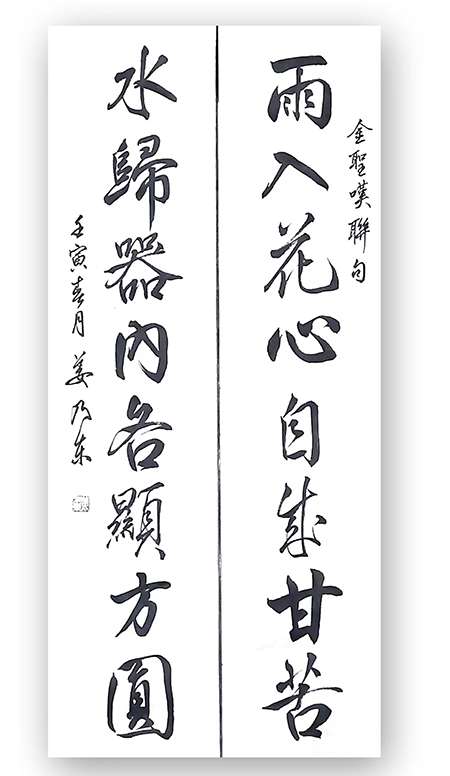 金聖嘆聯句
雨入花心自成甘苦
水歸器內各顯方圓
壬寅春月 姜乃东